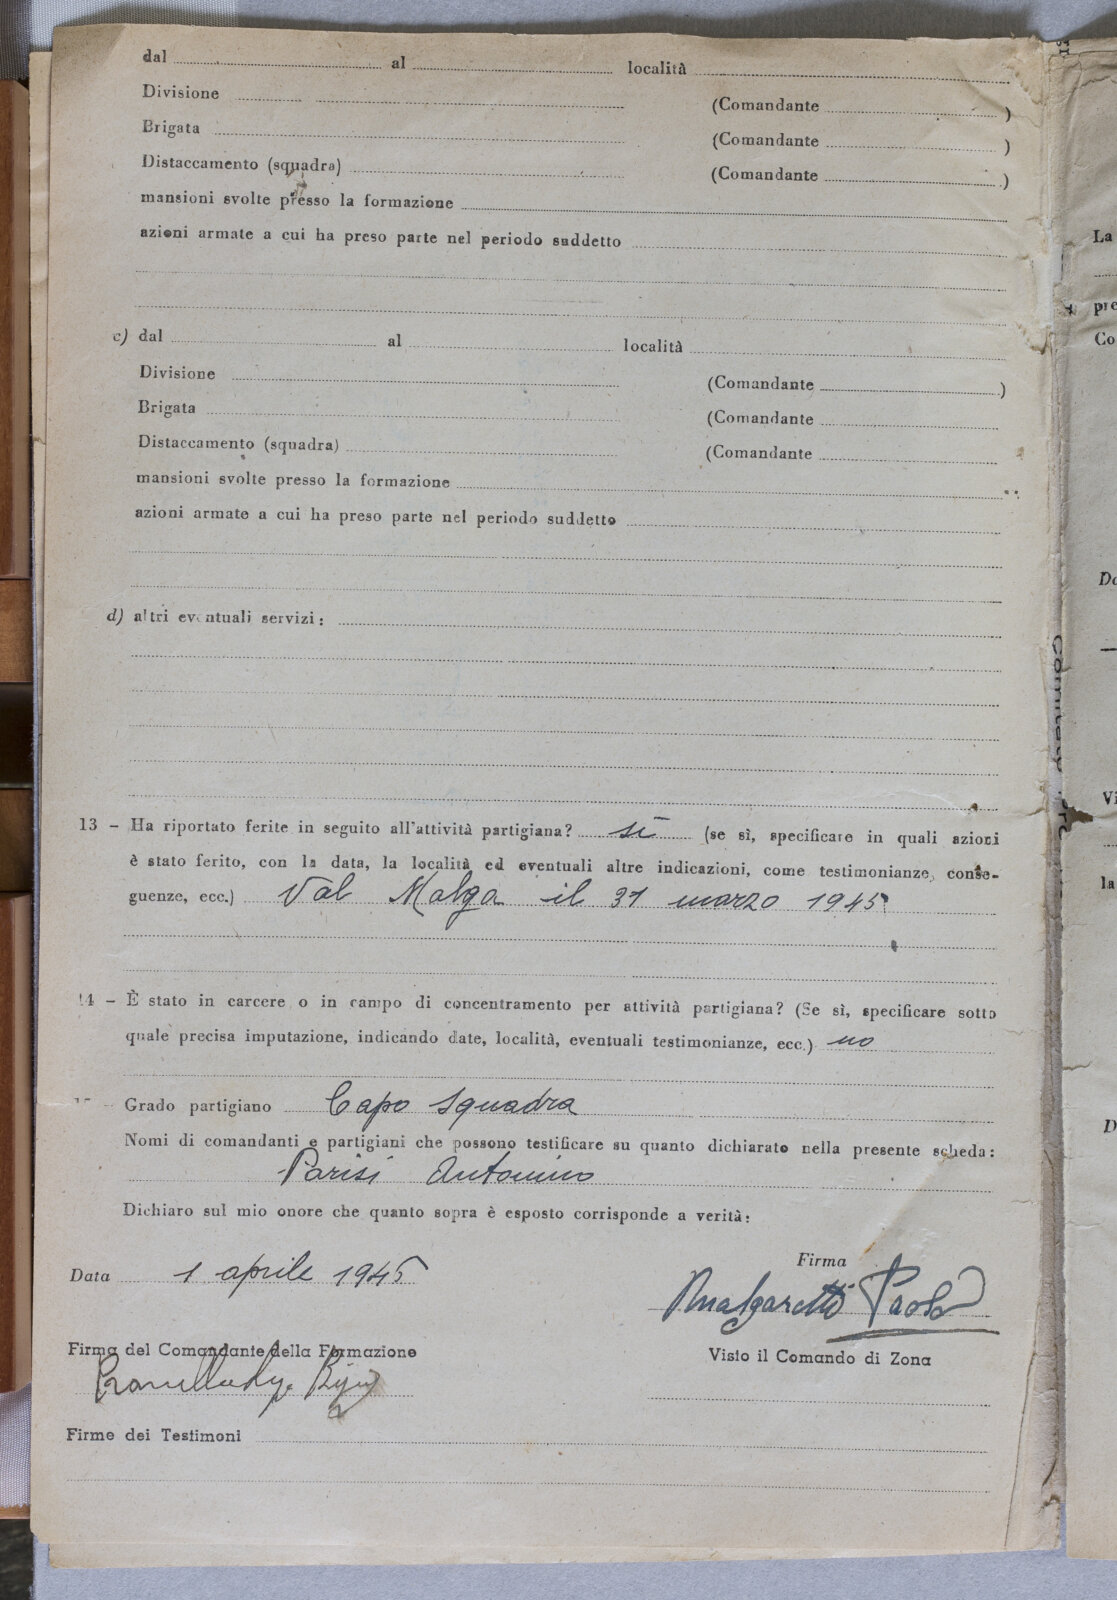 dal al località
Divisione (Comandante )
Brigata (Comandante )
Distaccamento (squadra) (Comandante )
mansioni svolte presso la formazione
azioni armate a cui ha preso parte nel periodo suddetto
c) dal al località
Divisione (Comandante )
Brigata (Comandante
Distaccamento (squadra) (Comandante
mansioni svolte presso la formazione
azioni armate a cui ha preso parte nel periodo suddetto
d) altri eventuali servizi:
13 - Ha riportato ferite in seguito all'attività partigiana? sì (se sì, specificare in quali azioni
è stato ferito, con la data, la località ed eventuali altre indicazioni, come testimonianze, conse-
guenze, ecc.) Val Malga il 31 marzo 1945
14 - È stato in carcere o in campo di concentramento per attività partigiana? (Se sì, specificare sotto
quale precisa imputazione, indicando date, località, eventuali testimonianze, ecc.) no
Grado partigiano Capo Squadra
Nomi di comandanti e partigiani che possono testificare su quanto dichiarato nella presente scheda:
Parisi Antonino
Dichiaro sul mio onore che quanto sopra è esposto corrisponde a verità:
Data 1 aprile 1945
Firma
Malgaretti Paolo
Firma del Comandante della Formazione
Visto il Comando di Zona
Firme dei Testimoni
La
pre
Co
Vi
la
D